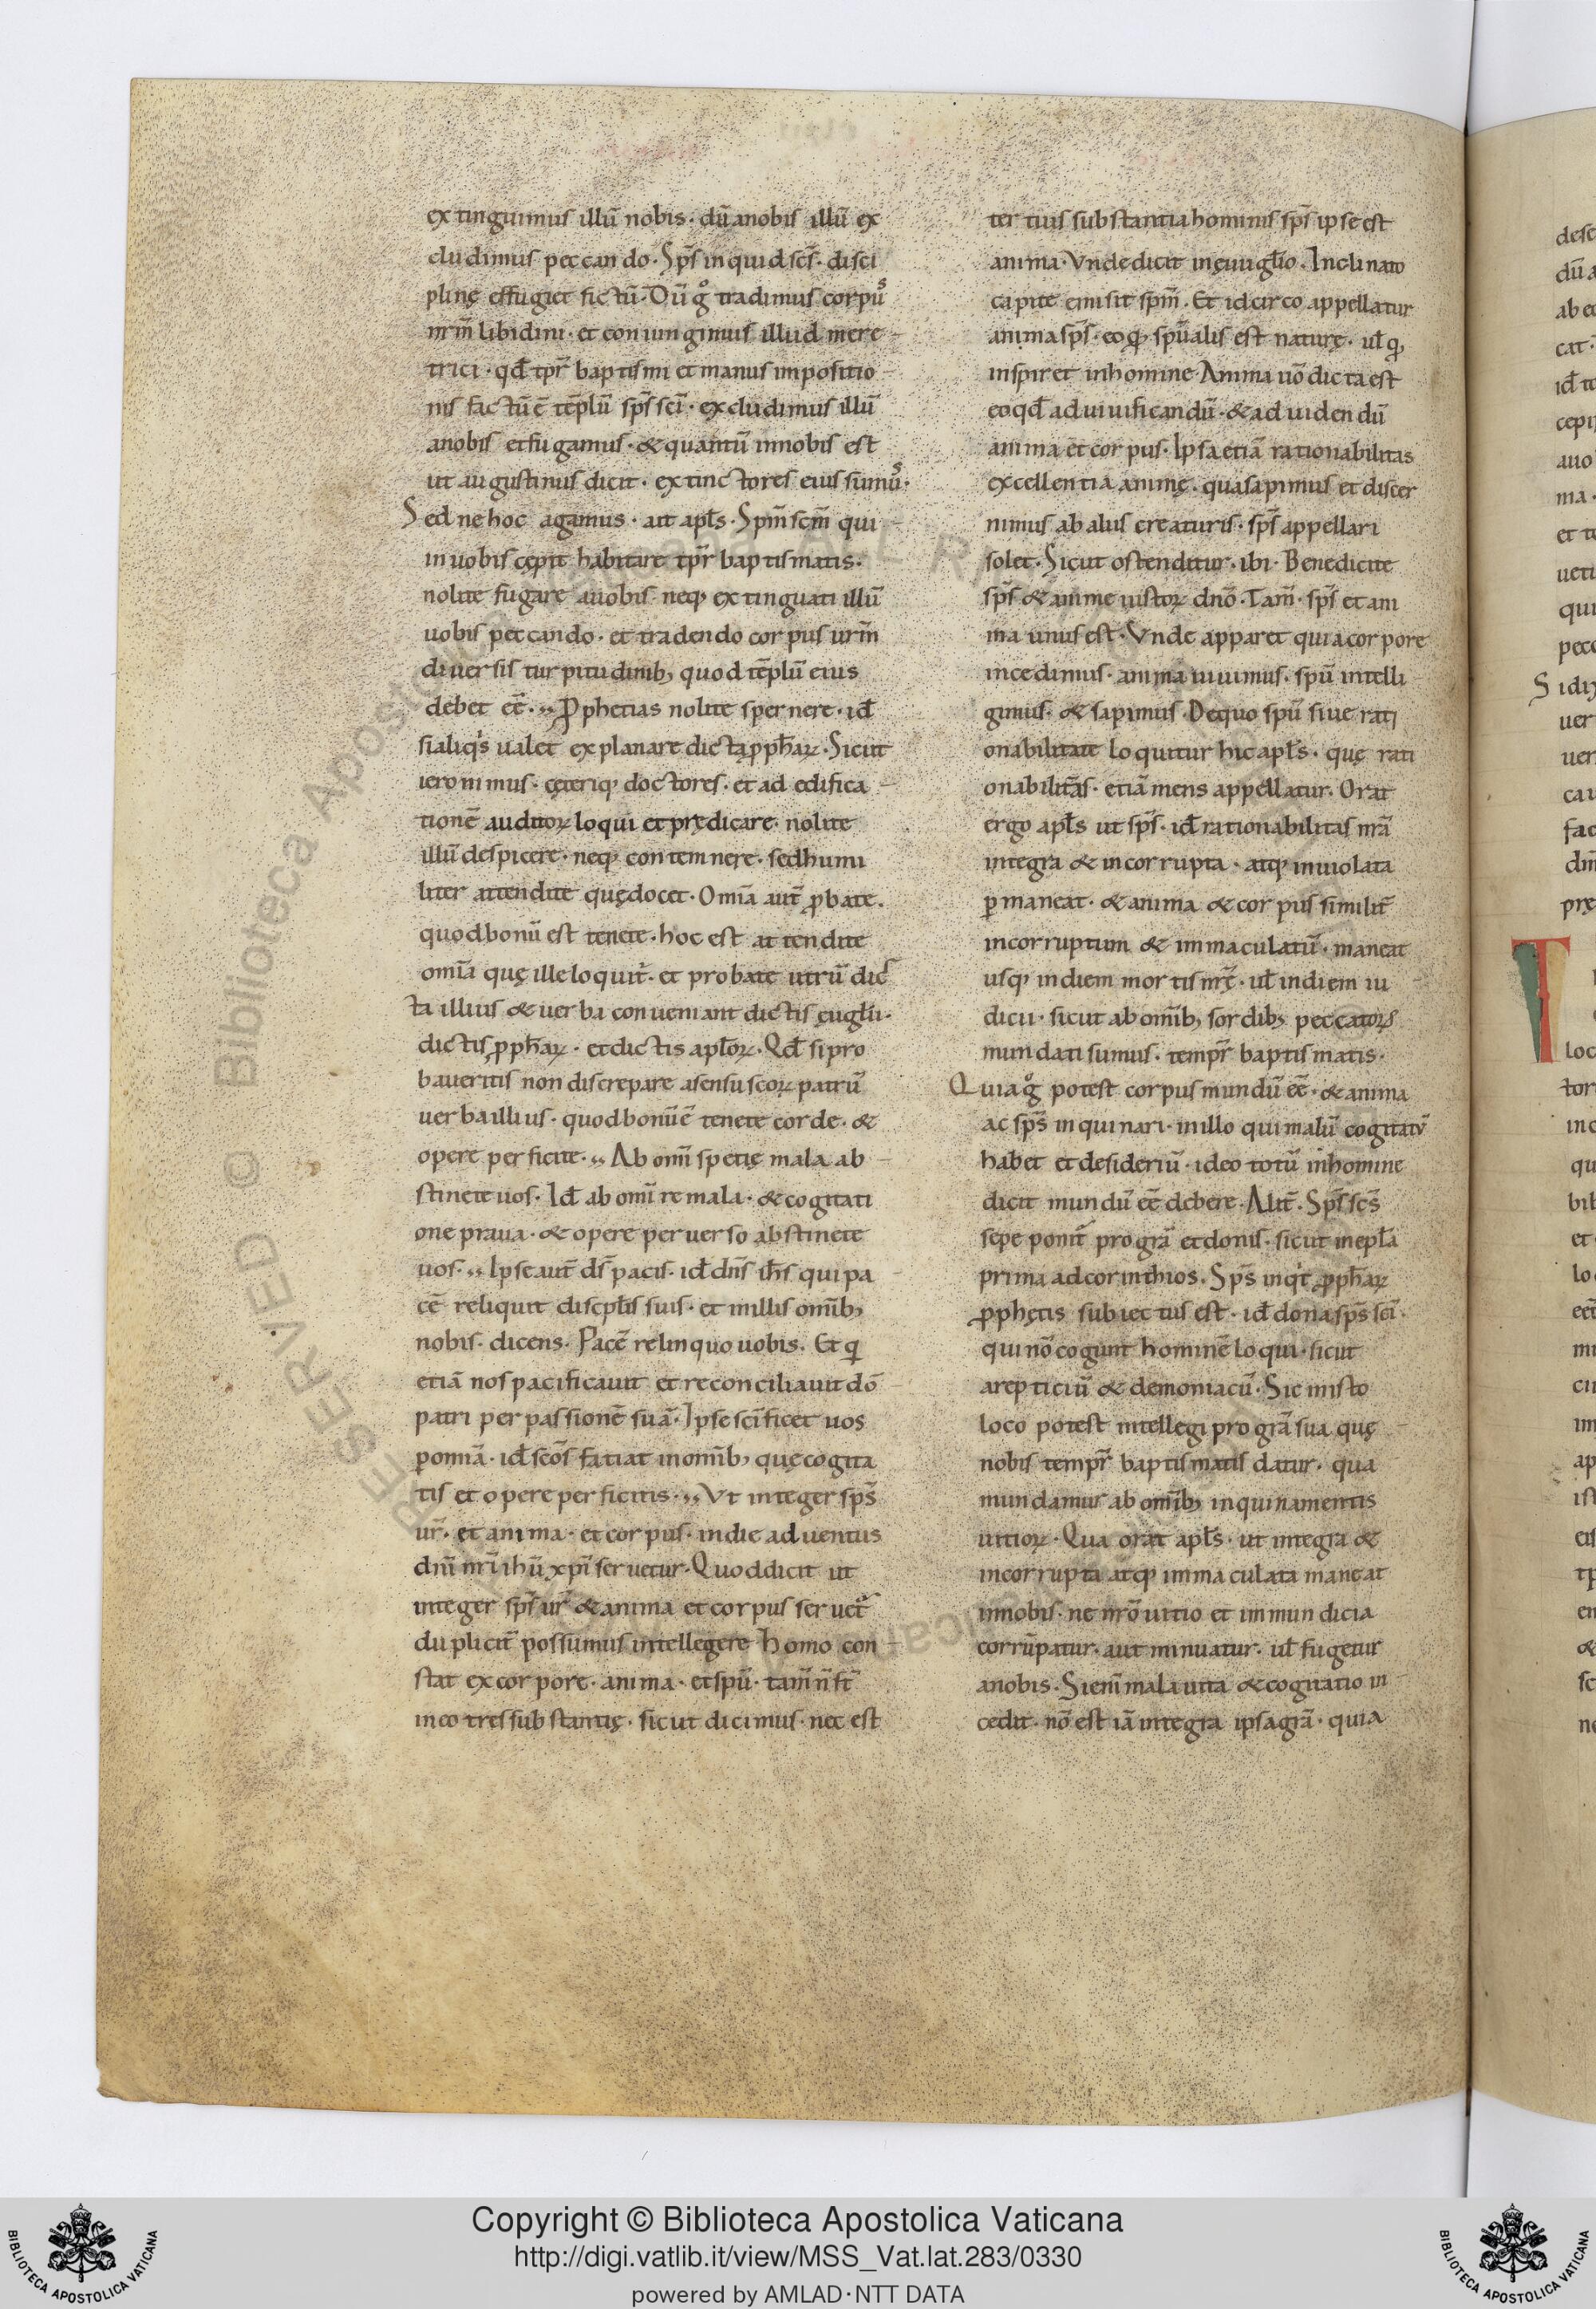 extinguimus illũ nobis · dũ anobis illũ ex
cludimus peccando · Sp̃s inquid sc̃s · disci
plinę effugiet fictũ · Dũ gͦ tradimus corpuˢ
nr̃m libidini · et coniungimus illud mere
trici · qd̃ tp̃r baptismi et manus impositio
nis factũ ẽ tẽplũ sp̃s sc̃i · excludimus illũ
anobis et fugamus · & quantũ innobis est
ut augustinus dicit · extinctores eius sumuˢ ·
Sed ne hoc agamus · ait apl̃s · Spm̃ scm̃ qui
in uobis cępit habitare tp̃r baptismatis ·
nolite fugare auobis neqꝫ extinguati illũ
uobis peccando · et tradendo corpus urm̃
diuersis turpitudinibꝫ quod tẽplũ eius
debet eẽ · ,, Ꝓphetias nolite spernere · id̃
si aliqͥs ualet explanare dicta ꝓph̃aꝝ · Sicut
ieronimus · cęteriqꝫ doctores · et ad edifica
tionẽ auditoꝝ loqui et prędicare · nolite
illũ despicere · neqꝫ contemnere · sed humi
liter attendite quę docet · Om̃ia aut̃ ꝓbate ·
quod bonũ est tenete · hoc est attendite
om̃ia quę ille loquit̃ · et probate utrũ dic
ta illius & uerba conueniant dictis eugl̃ii ·
dictis ꝓph̃aꝝ · et dictis apl̃oꝝ · Qd̃ si pro
baueritis non discrepare asensu scoꝝ patrũ
uerba illius · quod bonũ ẽ tenete corde · &
opere perficite · ,, Ab om̃i spetię mala ab
stinete uos · Id̃ ab om̃i re mala · & cogitati
one praua · & opere peruerso abstinete
uos · ,, Ipse aut̃ ds̃ pacis · id̃ dñs ih̃s qui pa
cẽ reliquit discipl̃is suis · et inillis om̃ibꝫ
nobis · dicens · Pacẽ relinquo uobis · Et qͥ
etiã nos pacificauit et reconciliauit dõ
patri per passionẽ suã · Ipse sc̃ificet uos
ꝑ om̃ia · id̃ sc̃os fatiat inom̃ibꝫ quę cogita
tis et opere perficitis · ,, Vt integer sp̃s
ur̃ · et anima · et corpus · indie aduentus
dñi nr̃i ihũ xp̃i seruetur · Quod dicit ut
integer sp̃s ur̃ & anima et corpus seruet̃
duplicit̃ possumus intellegere Homo con
stat ex corpore · anima · et spũ · tam̃ ñ st̃
in eo tres substantię · sicut dicimus · nec est
tertius substantia hominis sp̃s ipse est
anima · Vnde dicit in euugl̃io · Inclinato
capite emisit spm̃ · Et idcirco appellatur
anima sp̃s · eo qͩ spũalis est naturę · ul̃ qͩ
inspiret inhomine Anima uõ dicta est
eo qd̃ ad uiuificandũ · & ad uidendũ
animaet corpus · Ipsa etiã rationabilitas
excellentia animę · qua sapimus et discer
nimus ab aliis creaturis · sp̃s appellari
solet · Sicut ostenditur · ibi · Benedicite
sp̃s & anime iustoꝝ dnõ · Tam̃ · sp̃s et ani
ma unus est · Vnde apparet quia corpore
incedimus · anima uiuimus · spũ intelli
gimus · & sapimus · De quo spũ siue rati
onabilitate loquitur hic apl̃s · quę rati
onabilitas · etiã mens appellatur · Orat
ergo apl̃s ut sp̃s · id̃ rationabilitas nr̃a
integra & incorrupta · atqꝫ inuiolata
ꝑmaneat · & anima & corpus similit̃
incorruptum & immaculatũ · maneat
usqꝫ indiem mortis nr̃ę · ul̃ indiem iu
dicii · sicut ab om̃ibꝫ sordibꝫ peccatoꝝ
mundati sumus · temp̃r baptismatis ·
Quia gͦ potest corpus mundũ eẽ · & anima
ac sp̃s inquinari · in illo qui malũ cogitatũ
habet et desideriũ · ideo totũ inhomine
dicit mundũ eẽ debere · Alit̃ · Sp̃s sc̃s
sepe ponit̃ pro gr̃a et donis · sicut inepl̃a
prima ad corinthios · Sp̃s inqͥt ꝓph̃aꝝ
ꝓphętis subiectus est · id̃ dona sp̃s sc̃i ·
qui nõ cogunt hominẽ loqui · sicut
arepticiũ & demoniacũ · Sic in isto
loco potest intellegi pro gr̃a sua quę
nobis temp̃r baptismatis datur · qua
mundamur ab om̃ibꝫ inquinamentis
uitioꝝ · Qua orat apl̃s · ut integra &
incorrupta atqꝫ immaculata maneat
innobis · ne nr̃o uitio et immundicia
corrũpatur · aut minuatur · ul̃ fugetur
anobis · Si eni̅ mala uita & cogitatio in
cedit · nõ est iã integra ipsa gr̃a · quia
Copyright © Biblioteca Apostolica Vaticana
http://digi.vatlib.it/view/MSS_Vat.lat.283/0330
powered by AMLAD·NTT DATA